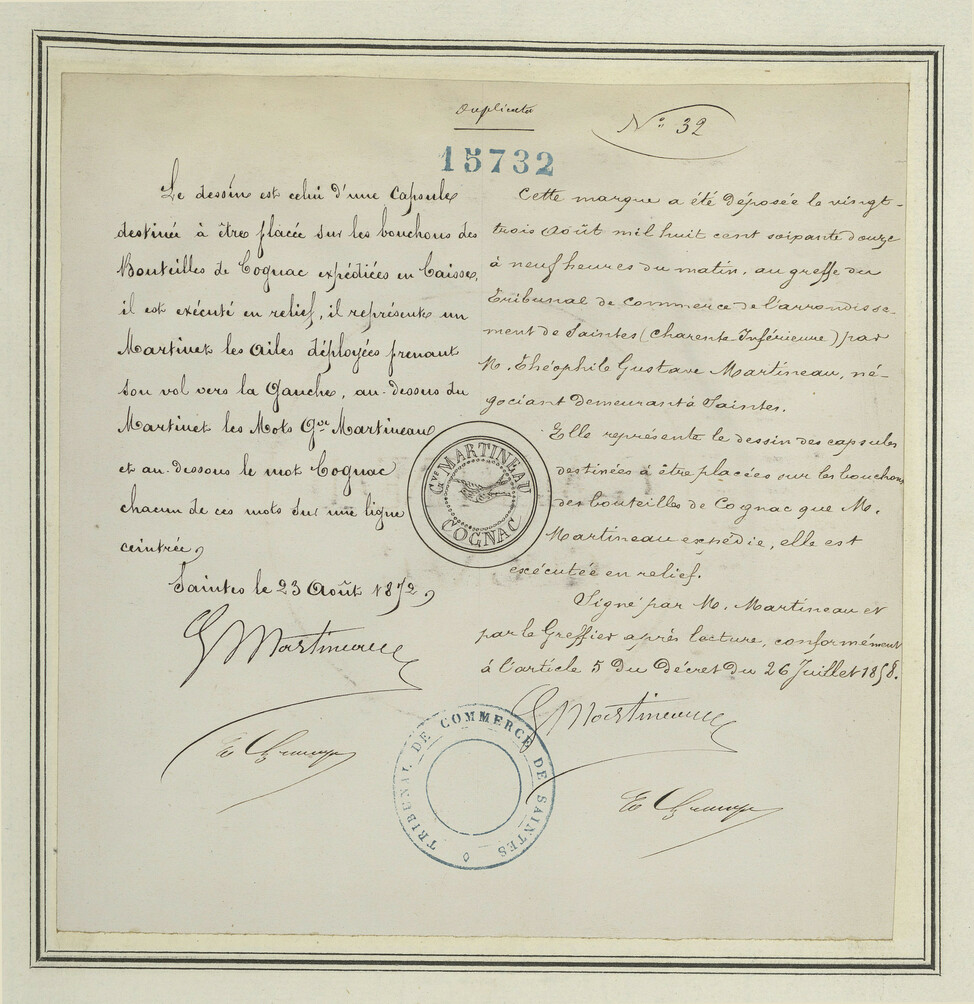 Duplicata
N° 32
15732
Le dessin est celui d'une Capsule
destinée à être placée sur les bouchons des
Bouteilles de Cognac expédiées en Caisse,
il est exécuté en relief, il représente un
Martinet les Ailes déployées prenant
son vol vers la Gauche, au-dessus du
Martinet les Mots Gve Martineau
et au-dessous le mot Cognac
chacun de ces mots sur une ligne
ceintrée,
Saintes le 23 Août 1872,
G Martineau
Cette marque a été déposée le vingt-
trois Août mil huit cent soixante douze
à neuf heures du matin, au greffe du
Tribunal de commerce de l'arrondisse-
ment de Saintes (Charente-Inférieure) par
M. Théophile Gustave Martineau, né-
gociant demeurant à Saintes.
Elle représente le dessin des capsules
destinées à être placées sur les bouchons
des bouteilles de Cognac que M.
Martineau expédie, elle est
exécutée en relief.
Signé par M. Martineau et
par le Greffier après lecture, conformément
à l'article 5 du Décret du 26 Juillet 1858.
G Martineau
GVE MARTINEAU
COGNAC
TRIBUNAL DE COMMERCE DE SAINTES